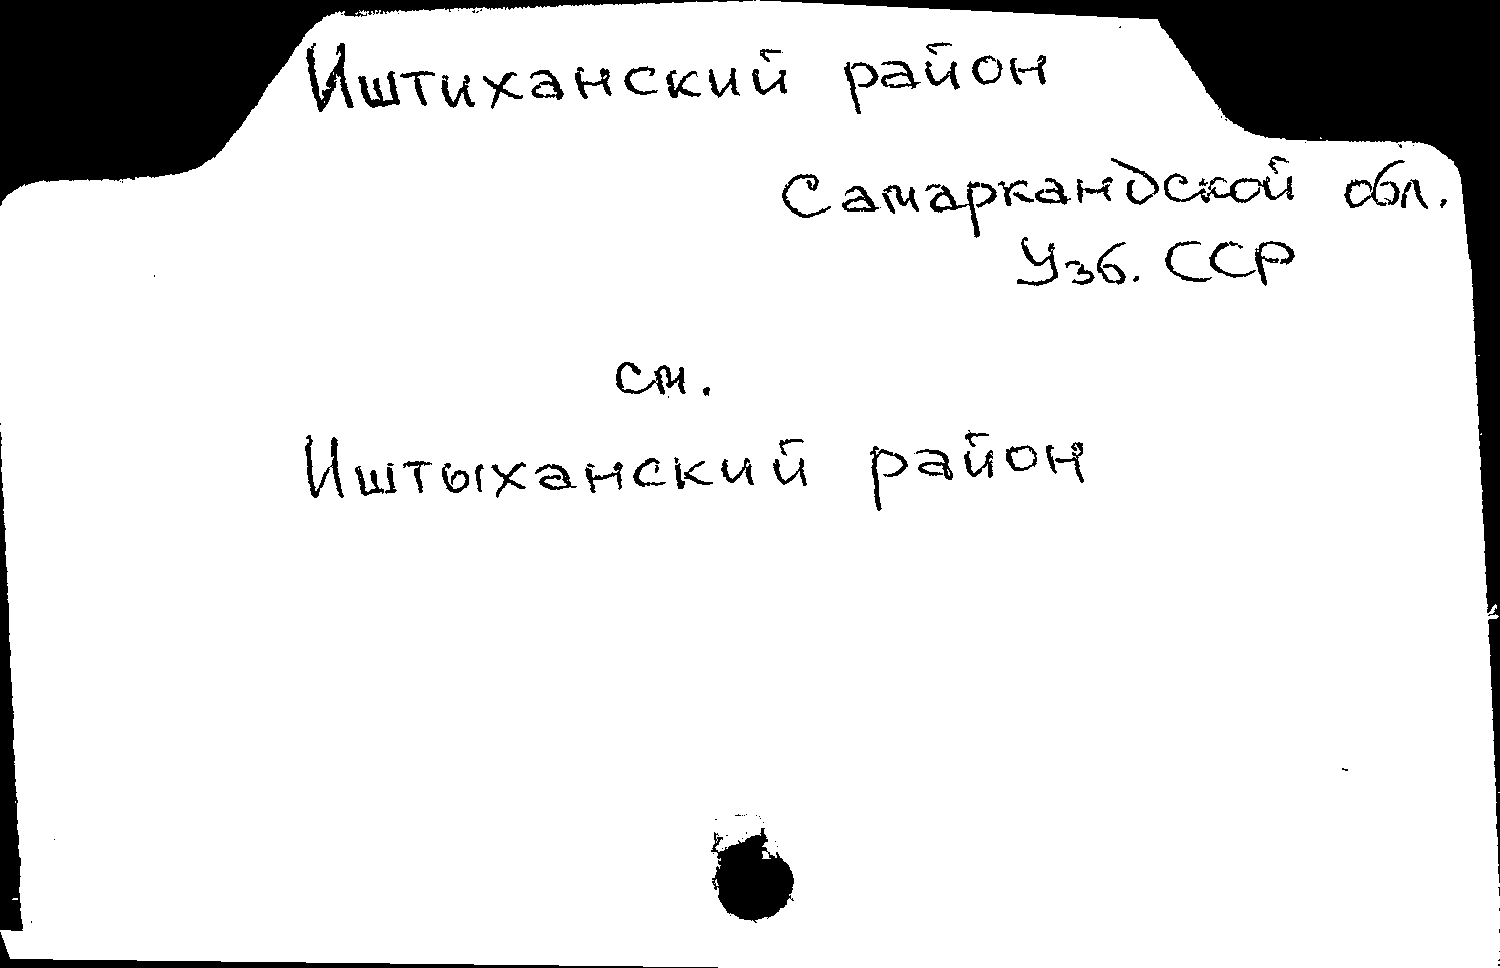 Иштиханский район
Самаркандской обл.
Узб. ССР
см.
Иштыханский район